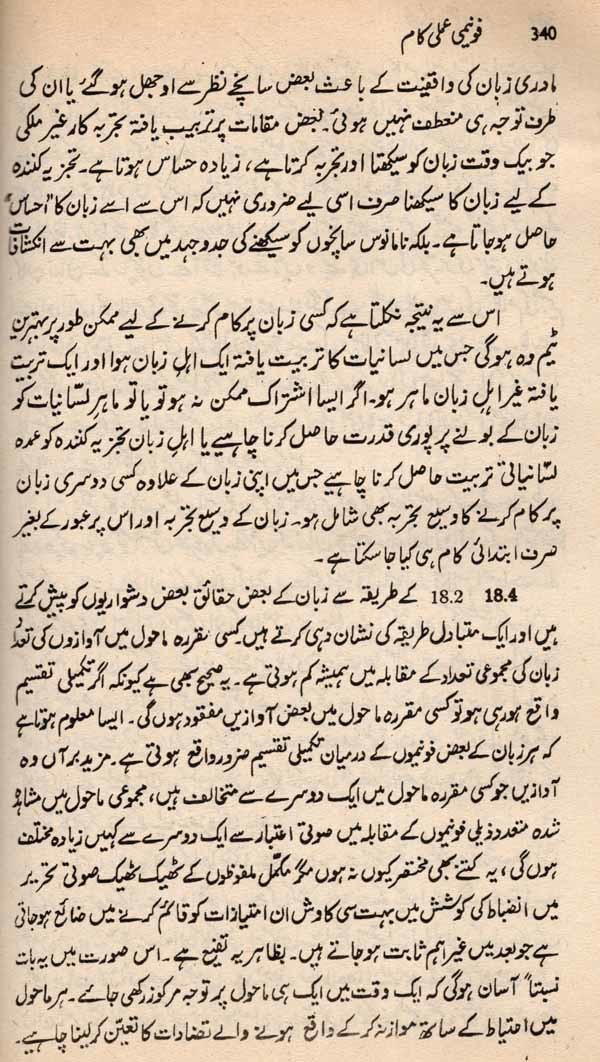 340 فونیمی عملی کام
مادری زبان کی واقفیت کے باعث بعض سانچے نظر سے اوجھل ہو گئے یا ان کی
طرف توجہ ہی منعطف نہیں ہوئی۔ بعض مقامات پر تربیت یافتہ تجربہ کار غیر ملکی
جو بیک وقت زبان کو سیکھتا اور تجزیہ کرتا ہے، زیادہ حساس ہوتا ہے۔ تجزیہ کنندہ
کے لیے زبان کا سیکھنا صرف اسی لیے ضروری نہیں کہ اس سے اسے زبان کا "احساس"
حاصل ہو جاتا ہے۔ بلکہ نامانوس سانچوں کو سیکھنے کی جدوجہد میں بھی بہت سے انکشافات
ہوتے ہیں۔
اس سے یہ نتیجہ نکلتا ہے کہ کسی زبان پر کام کرنے کے لیے ممکن طور پر بہترین
ٹیم وہ ہوگی جس میں لسانیات کا تربیت یافتہ ایک اہلِ زبان ہو اور ایک تربیت
یافتہ غیر اہلِ زبان ماہر ہو۔ اگر ایسا اشتراک ممکن نہ ہو تو یا تو ماہرِ لسانیات کو
زبان کے بولنے پر پوری قدرت حاصل کرنا چاہیے یا اہلِ زبان تجزیہ کنندہ کو عمدہ
لسانیاتی تربیت حاصل کرنا چاہیے جس میں اپنی زبان کے علاوہ کسی دوسری زبان
پر کام کرنے کا وسیع تجربہ بھی شامل ہو۔ زبان کے وسیع تجربہ اور اس پر عبور کے بغیر
صرف ابتدائی کام ہی کیا جا سکتا ہے۔
18.4 18.2 کے طریقہ سے زبان کے بعض حقائق بعض دشواریوں کو پیش کرتے
ہیں اور ایک متبادل طریقہ کی نشان دہی کرتے ہیں۔ کسی مقررہ ماحول میں آوازوں کی تعداد
زبان کی مجموعی تعداد کے مقابلہ میں ہمیشہ کم ہوتی ہے۔ یہ صحیح بھی ہے کیونکہ اگر تکمیلی تقسیم
واقع ہو رہی ہو تو کسی مقررہ ماحول میں بعض آوازیں مفقود ہوں گی۔ ایسا معلوم ہوتا ہے
کہ ہر زبان کے بعض فونیموں کے درمیان تکمیلی تقسیم ضرور واقع ہوتی ہے۔ مزید برآں وہ
آوازیں جو کسی مقررہ ماحول میں ایک دوسرے سے متخالف ہیں، مجموعی ماحول میں مشاہدہ
شدہ متعدد ذیلی فونیموں کے مقابلہ میں صوتی اعتبار سے ایک دوسرے سے کہیں زیادہ مختلف
ہوں گی، یہ کتنے بھی مختصر کیوں نہ ہوں مگر مکمل ملفوظوں کے ٹھیک ٹھیک صوتی تحریر
میں انضباط کی کوشش میں بہت سی کاوش ان امتیازات کو قائم کرنے میں ضائع ہو جاتی
ہے جو بعد میں غیر اہم ثابت ہو جاتے ہیں۔ بظاہر یہ تضیع ہے۔ اس صورت میں یہ بات
نسبتاً آسان ہوگی کہ ایک وقت میں ایک ہی ماحول پر توجہ مرکوز رکھی جائے۔ ہر ماحول
میں احتیاط کے ساتھ موازنہ کر کے واقع ہونے والے تضادات کا تعین کر لینا چاہیے۔